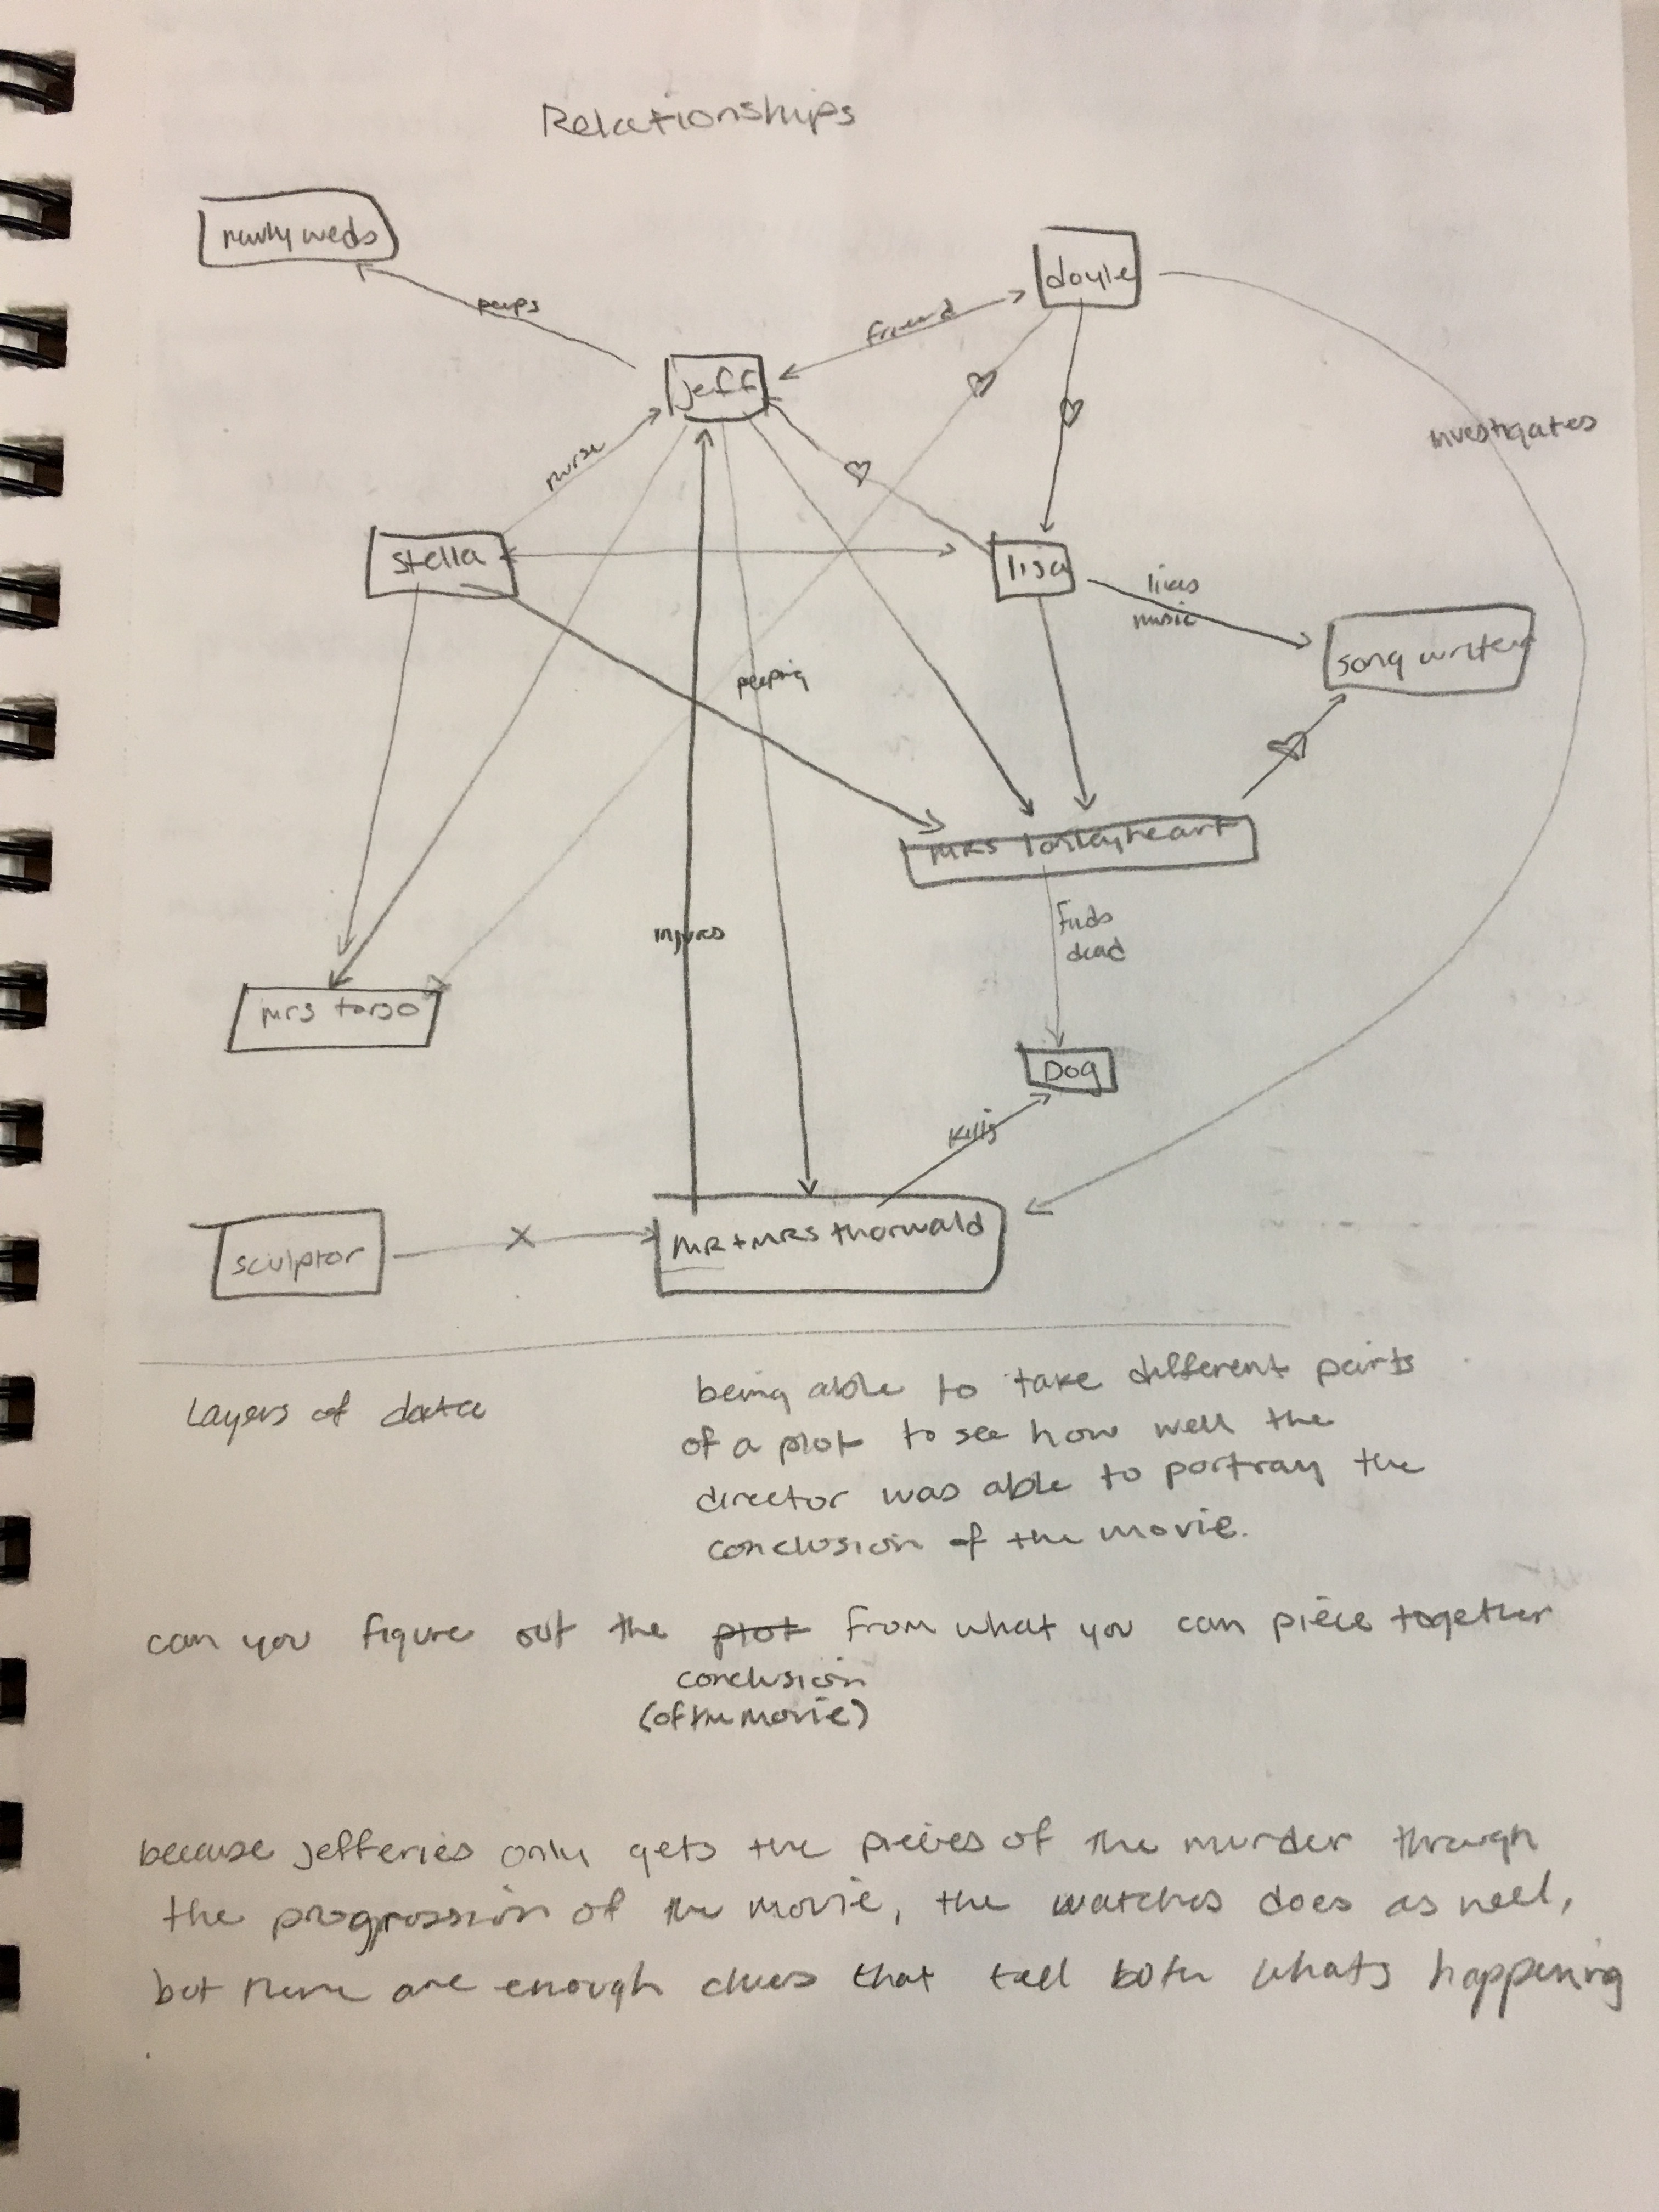 Relationships
newly weds
doyle
peeps
friend
jeff
investigates
nurse
stella
lisa
likes
music
song writer
peeping
MRS lonleyheart
finds
dead
injures
mrs torso
Dog
kills
sculptor
X
MR + MRS thorwald
Layers of data
being able to take different parts
of a plot to see how well the
director was able to portray the
conclusion of the movie.
can you figure out the plot from what you can piece together
conclusion
(of the movie)
because jefferies only gets the pieces of the murder through
the progression of the movie, the watches does as well,
but there are enough clues that tell both whats happening